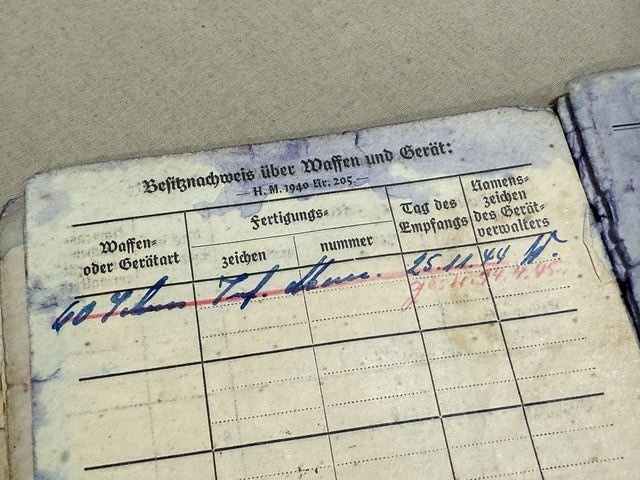 Besitznachweis über Waffen und Gerät:
H. M. 1940 Nr. 205.—
Waffen-
oder Gerätart
Fertigungs-
zeichen
nummer
Tag des
Empfangs
Namens-
zeichen
des Gerät-
verwalters
25.11.44